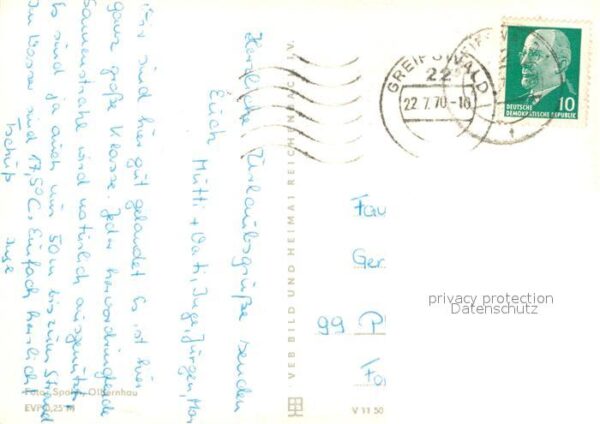 Herzliche Urlaubsgrüße senden
Euch Mutti + Vati, Inge, Jürgen,
Wir sind hier gut gelandet. Es ist hier
ganz große Klasse. Jeder hervordringende
Sonnenstrahl wird natürlich ausgenützt.
Es sind ja auch nur 50 m bis zum Strand
Im Wasser sind 17,5°C. Einfach herrlich!
Tschüß
Inge
Foto: Spohn, Olbernhau
EVP 0,25 M
VEB BILD UND HEIMAT REICHENBACH i. V.
V 11 50
GREIFSWALD
22
22.7.70.-16
DEUTSCHE
DEMOKRATISCHE REPUBLIK
10
Ger
99 Pl
privacy protection
Datenschutz